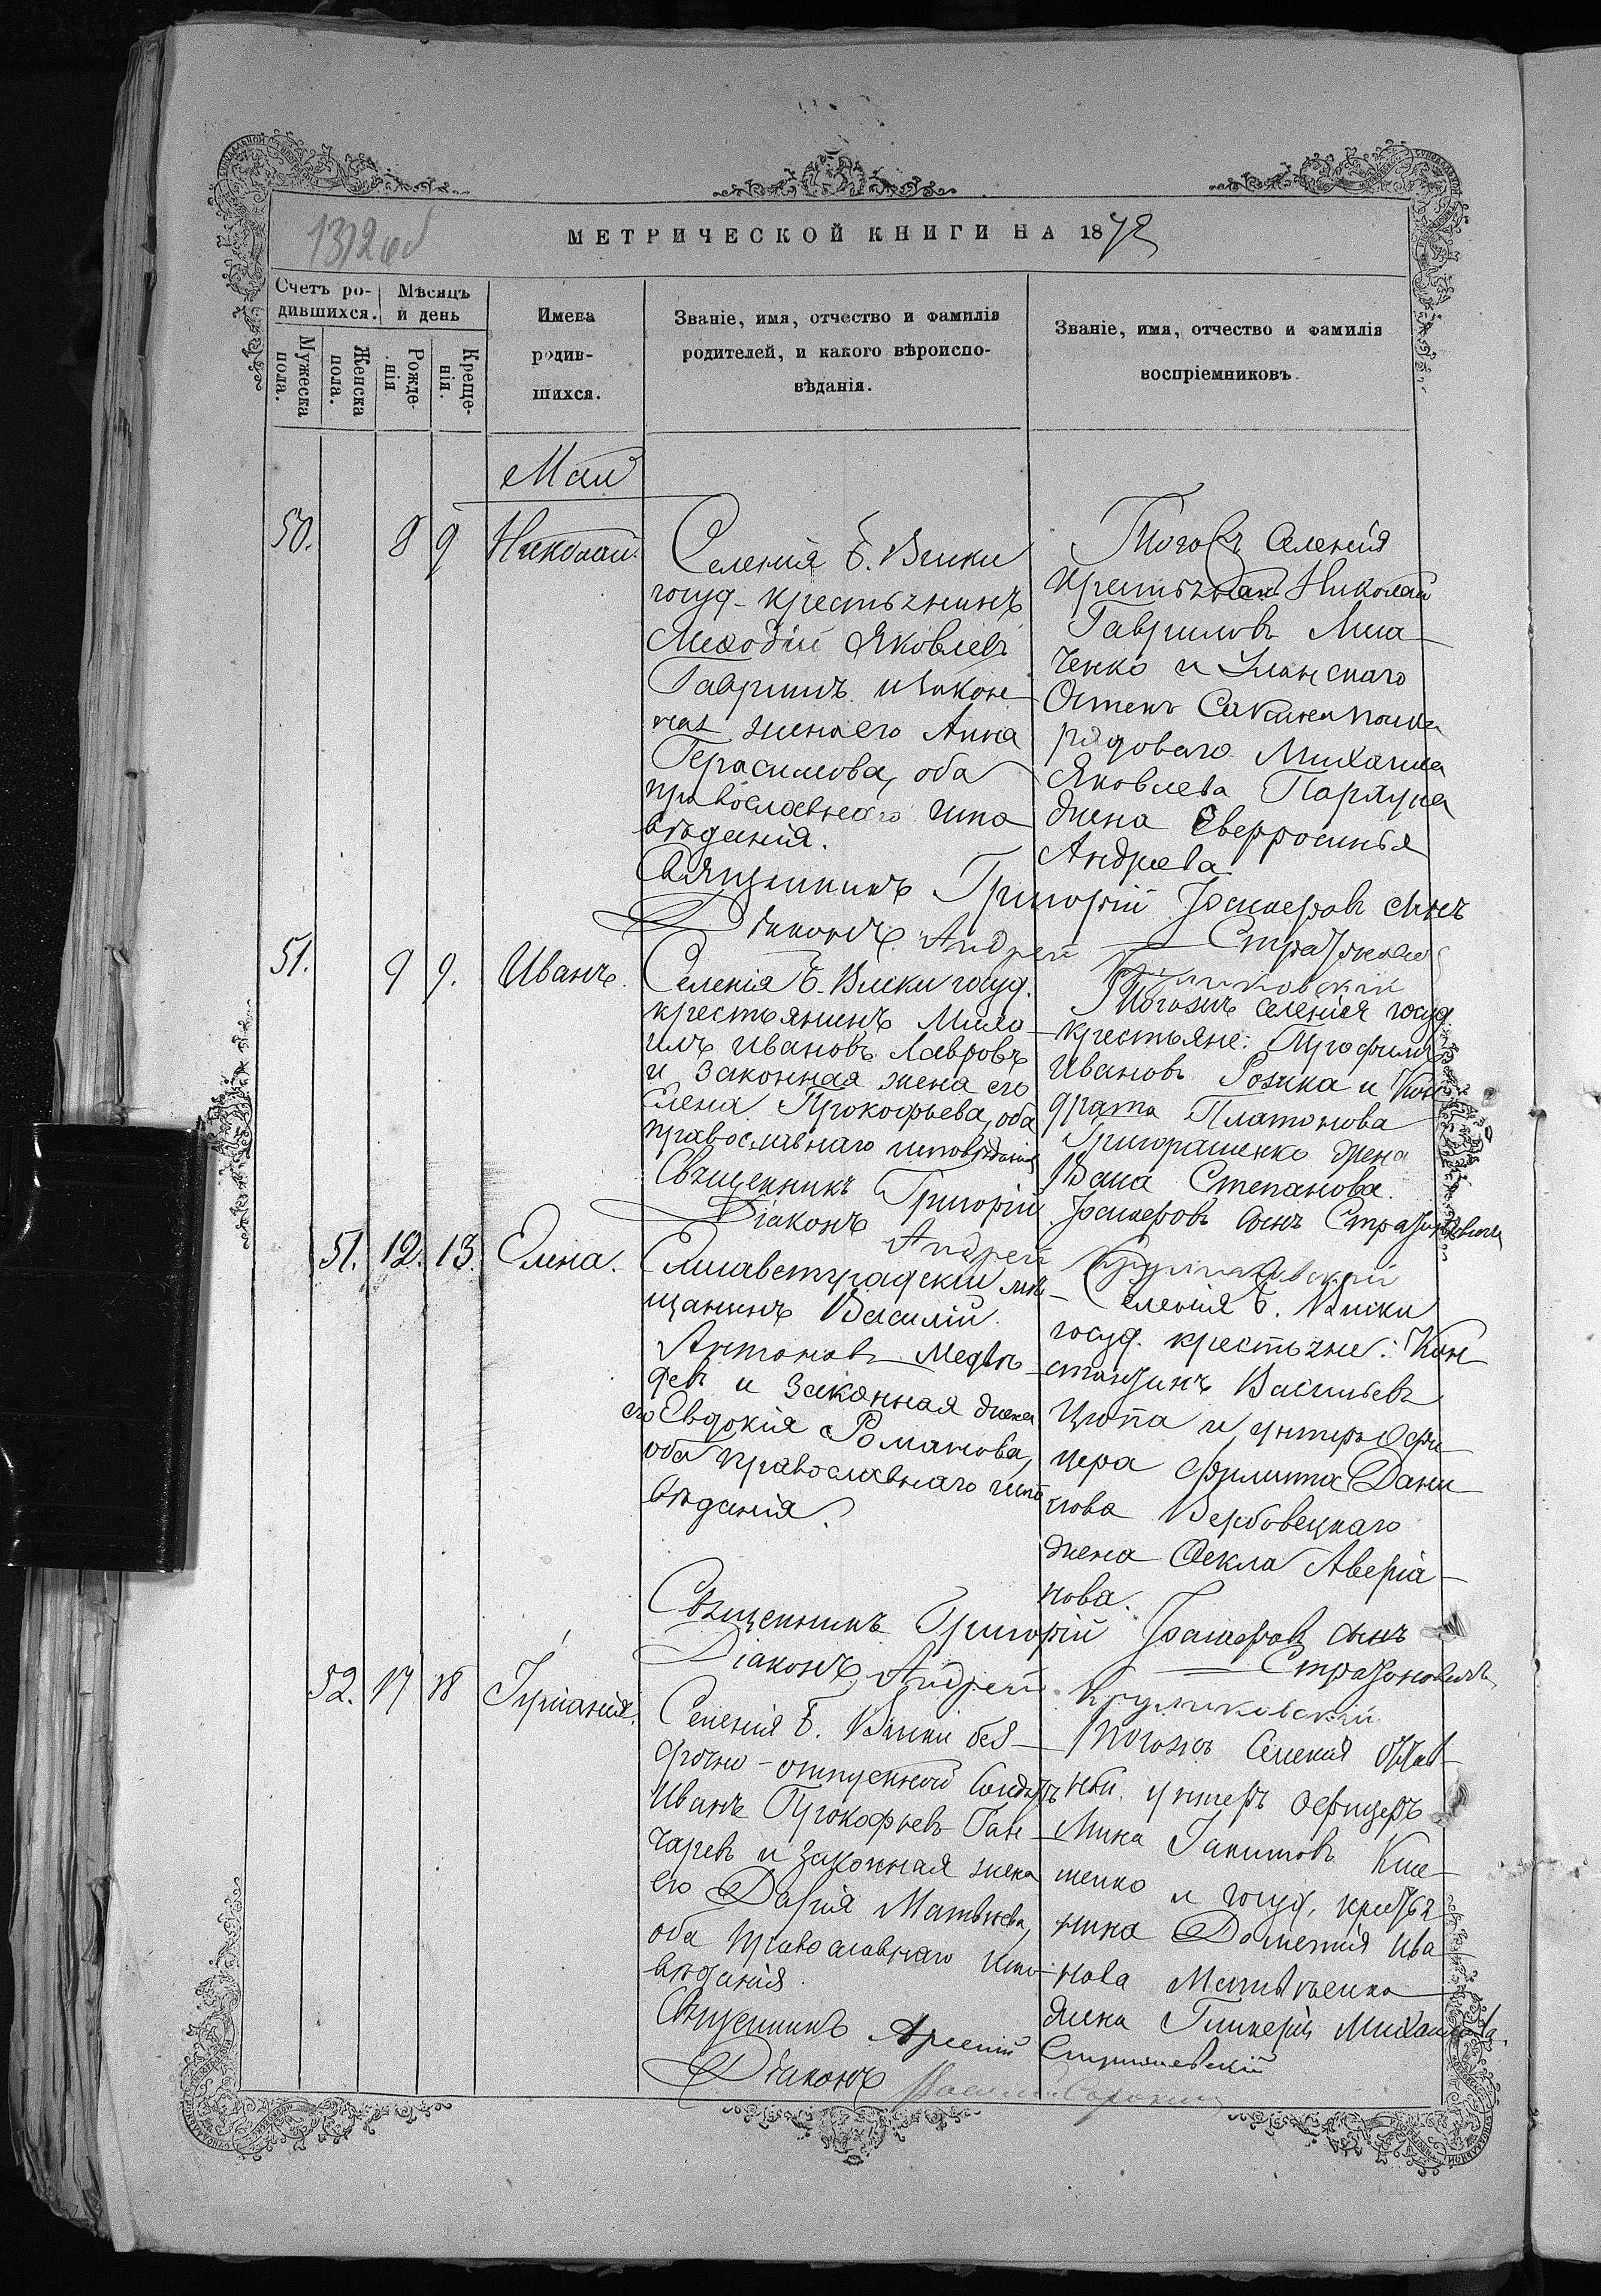 МЕТРИЧЕСКОЙ КНИГИ НА 1872
Счетъ ро-
дившихся.
Мужеска пола.
Женска пола.
Мѣсяцъ
и день
Рожде-
нія
Креще-
нія.
Имена
родив-
шихся.
Званіе, имя, отчество и фамилія
родителей, и какого вѣроиспо-
вѣданія.
Званіе, имя, отчество и фамилія
воспріемниковъ.
Май
50. 8 9 Николай.
Селенія Б. Виски
госуд. крестьянинъ
Меѳодій Яковлевъ
Гавришъ и закон-
ная жена его Анна
Герасимова, оба
православнаго испо-
вѣданія.
Тогожъ селенія
крестьянинъ Николай
Гавриловъ
ченко и Уланскаго
Остенъ Сакена полка
рядоваго Михаила
Яковлева
жена Евфросинья
Андреева
Священникъ Григорій сынъ
Діаконъ Андрей
51. 9 9. Иванъ.
Селенія Б. Виски госуд.
крестьянинъ Миха-
илъ Ивановъ Лавровъ
и законная жена его
Елена Прокофьева, оба
православнаго исповѣданія
Тогожъ селенія госуд.
крестьяне: Трофимъ
Ивановъ и Кон-
драта Платонова
Григорашенко жена
Васса Степанова.
Священникъ Григорій сынъ
Діаконъ Андрей
51. 12. 13. Елена.
Елисаветградскій мѣ-
щанинъ Василій
Антоновъ Медвѣ-
девъ и законная жена
его Евдокія Романова,
оба православнаго испо
вѣданія.
Селенія Б. Виски
госуд. крестьяне: Кон-
стантинъ Васильевъ
Цюпа и унтеръ офи-
цера Филиппа Дани-
лова Вербовецкаго
жена Ѳекла Аверіа-
нова.
Священникъ Григорій сынъ
Діаконъ Андрей
52. 17 18 Іуліанія.
Селенія Б. Виски без-
срочно-отпускной солдатъ
Иванъ Прокофьевъ Ган-
чаревъ и законная жена
его Дарія Матвѣева,
оба православнаго испо-
вѣданія.
Тогожъ селенія отстав-
ной унтеръ офицеръ
Мина
шенко и госуд. крестья-
нина Дометія Ива-
нова Матвѣенка
жена Гликерія Михаилова.
Священникъ Арсеній
Діаконъ